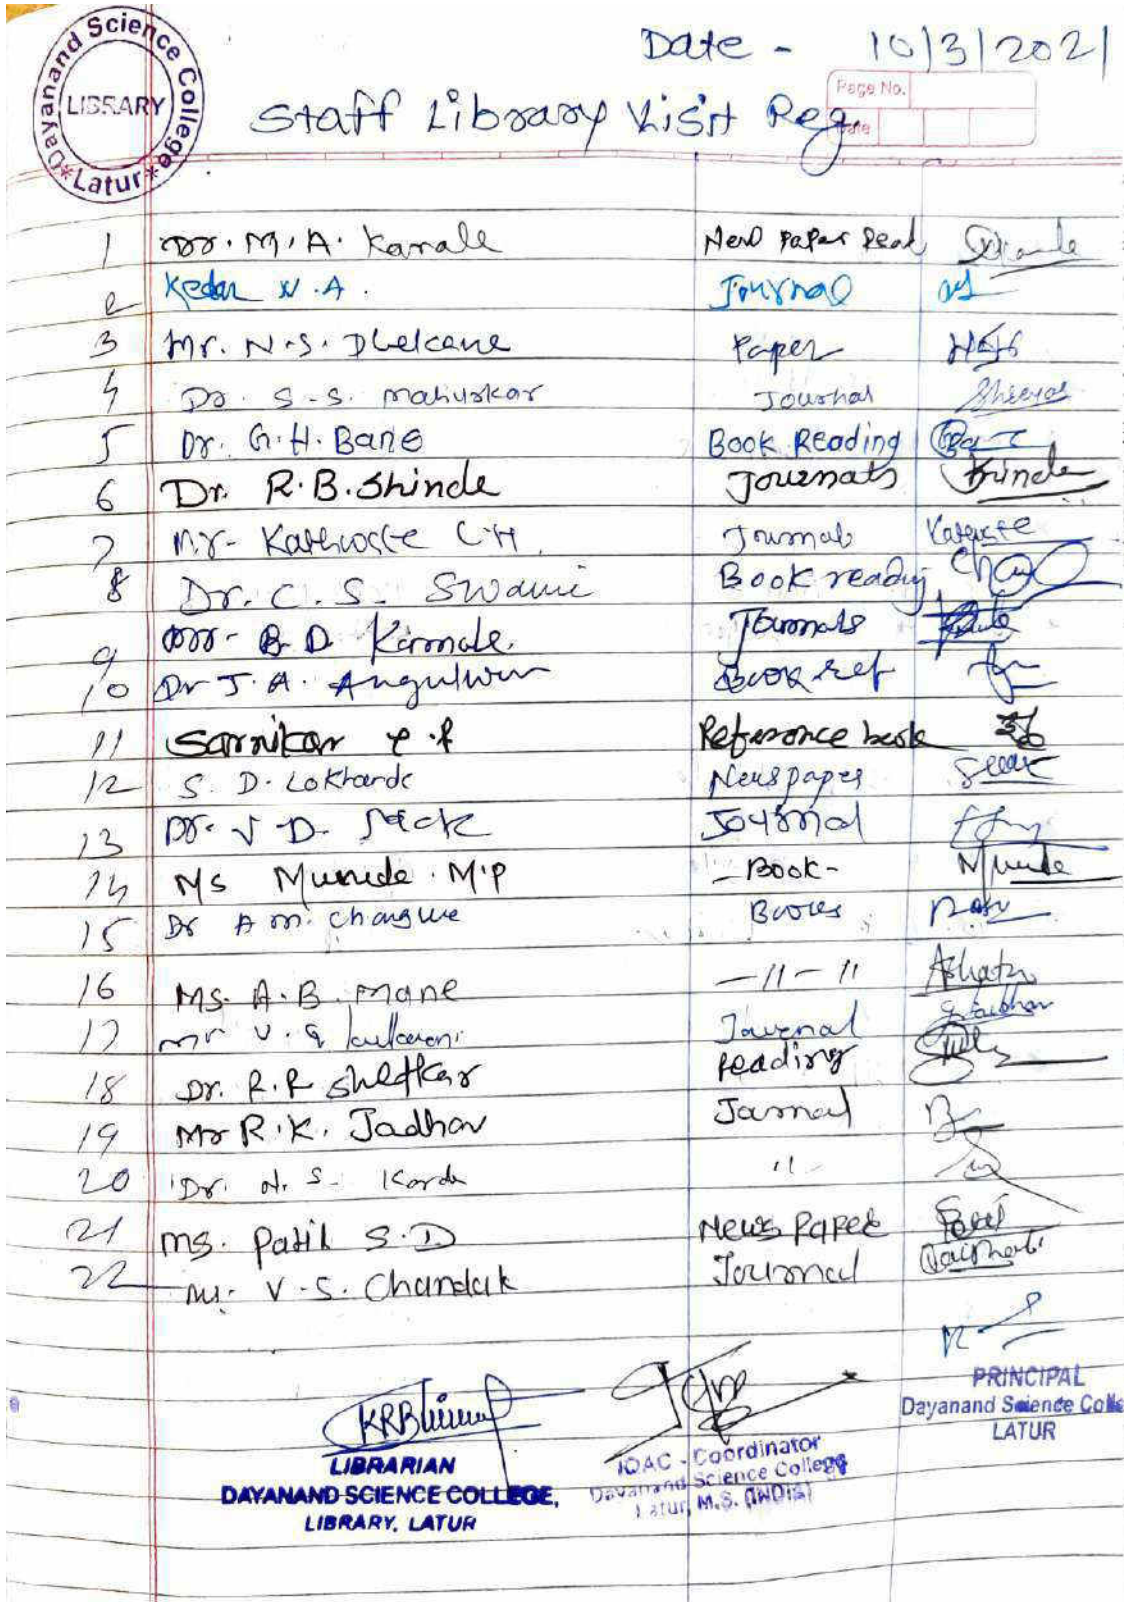 Dayanand Science College
LIBRARY
*Latur*
Date - 10/3/2021
Page No.
Date
Staff Library Visit Reg.
1 Dr. M. A. Kanale New Paper Read
2 Kedar N.A. Journal
3 Mr. N.S. Dhekane Paper
4 Dr. S.S. Mahurkar Journal
5 Dr. G.H. Bane Book Reading
6 Dr. R.B. Shinde Journals Shinde
7 Mr- Kathwate C.H. Journal
8 Dr. C. S. Swami Book reading
9 B.D. Karmale. Journals
10 Dr J. A. Book ref
11 Sarnikar Reference book
12 S. D. Lokhande Newspaper
13 Dr. V D. Journal
14 Ms Munde M.P -Book- Munde
15 Dr A M. Books
16 Ms. A.B. Mane -11-11
17 Mr V. G Kulkarni Journal
18 Dr. R.R Shetkar Reading
19 Mr R.K. Jadhav Journal
20 Dr. N. S. Karde 11
21 Ms. Patil S.D News Paper Patil
22 V.S. Chandak Journal
KRB
LIBRARIAN
DAYANAND SCIENCE COLLEGE,
LIBRARY, LATUR
IQAC - Coordinator
Dayanand Science College
Latur, M.S. (INDIA)
PRINCIPAL
Dayanand Science Colle
LATUR